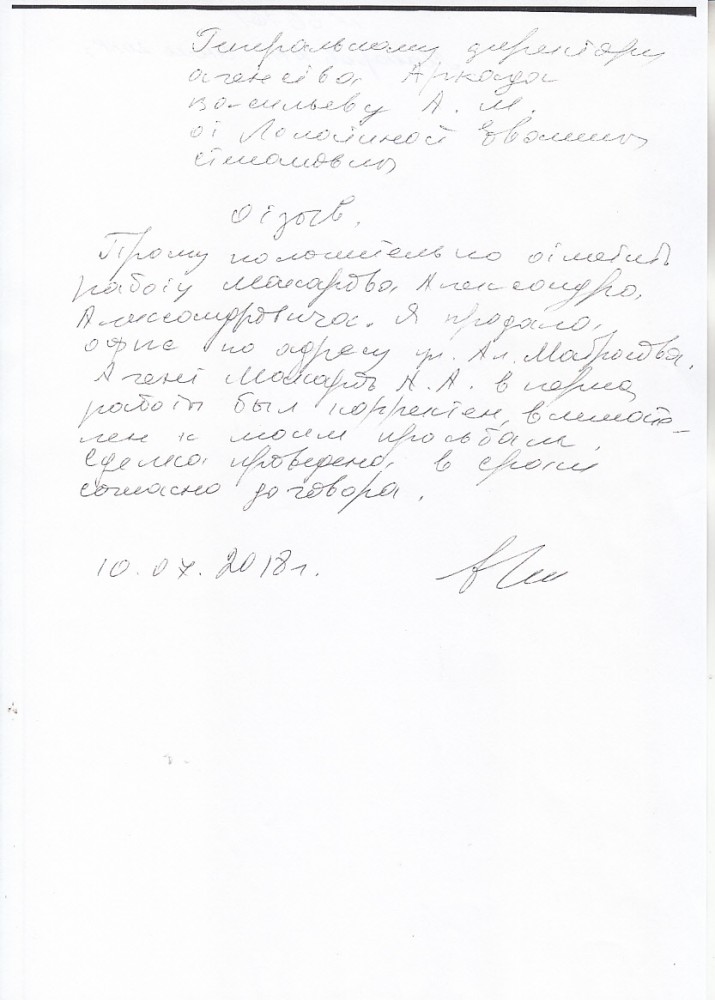 Генеральному директору
агенства Аркада
Васильеву А. М.
от
Степановны
Отзыв.
Прошу положительно отметить
работу Макарова Александра
Александровича. Я продала
офис по адресу ул. Ал. Матросова.
Агент Макаров А. А. в период
работы был корректен, внимате-
лен к моим просьбам.
Сделка проведена в сроки
согласно договора.
10.07.2018г.